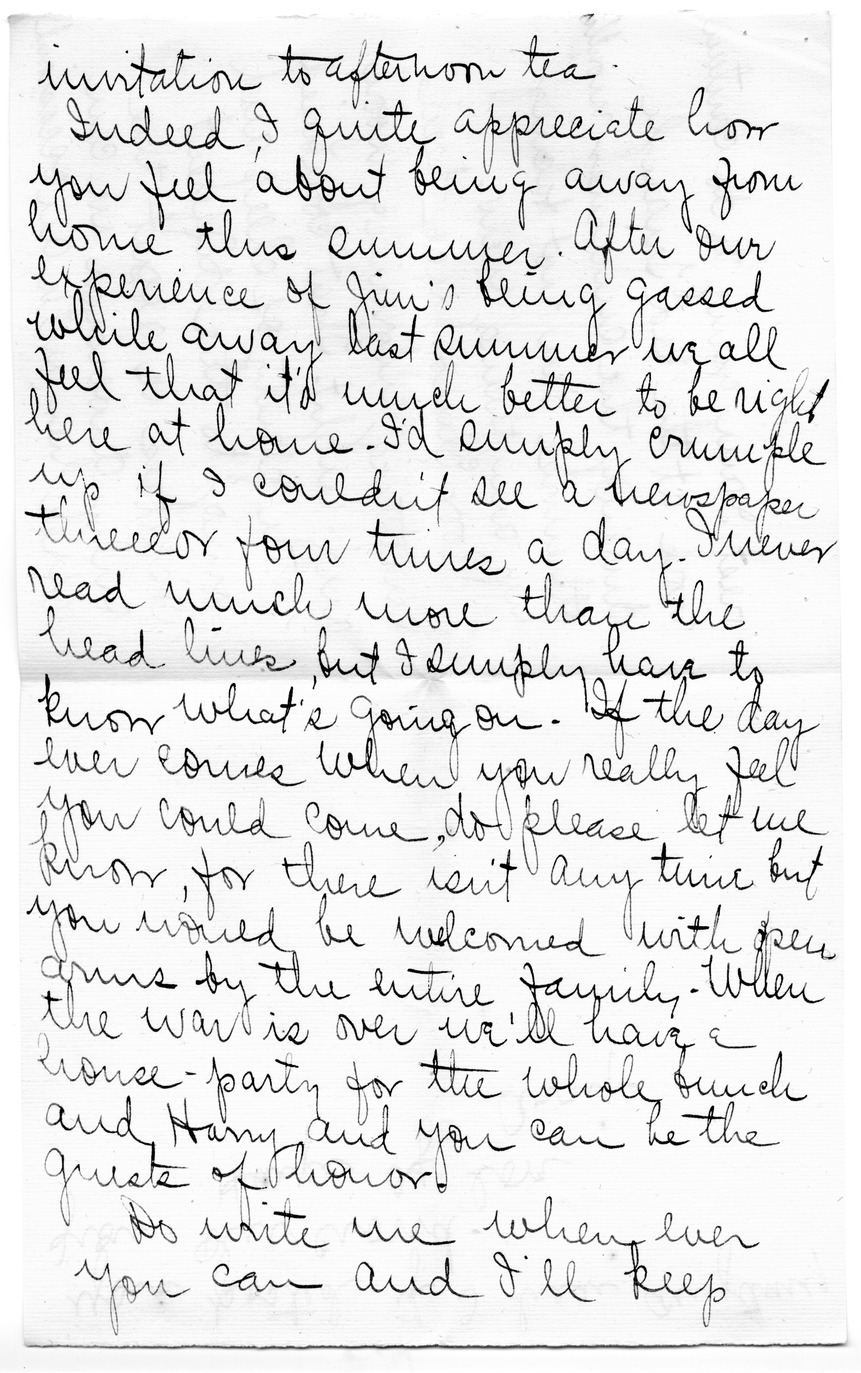 invitation to afternoon tea.
Indeed, I quite appreciate how
you feel about being away from
home this summer. After our
experience of Jim's being gassed
while away last summer we all
feel that it's much better to be right
here at home. I'd simply crumple
up if I couldn't see a newspaper
three or four times a day. I never
read much more than the
head lines, but I simply have to
know what's going on. If the day
ever comes when you really feel
you could come, do please let me
know, for there isn't any time but
you would be welcomed with open
arms by the entire family. When
the war is over we'll have a
house-party for the whole bunch
and Harry and you can be the
guests of honor.
Do write me when ever
you can and I'll keep